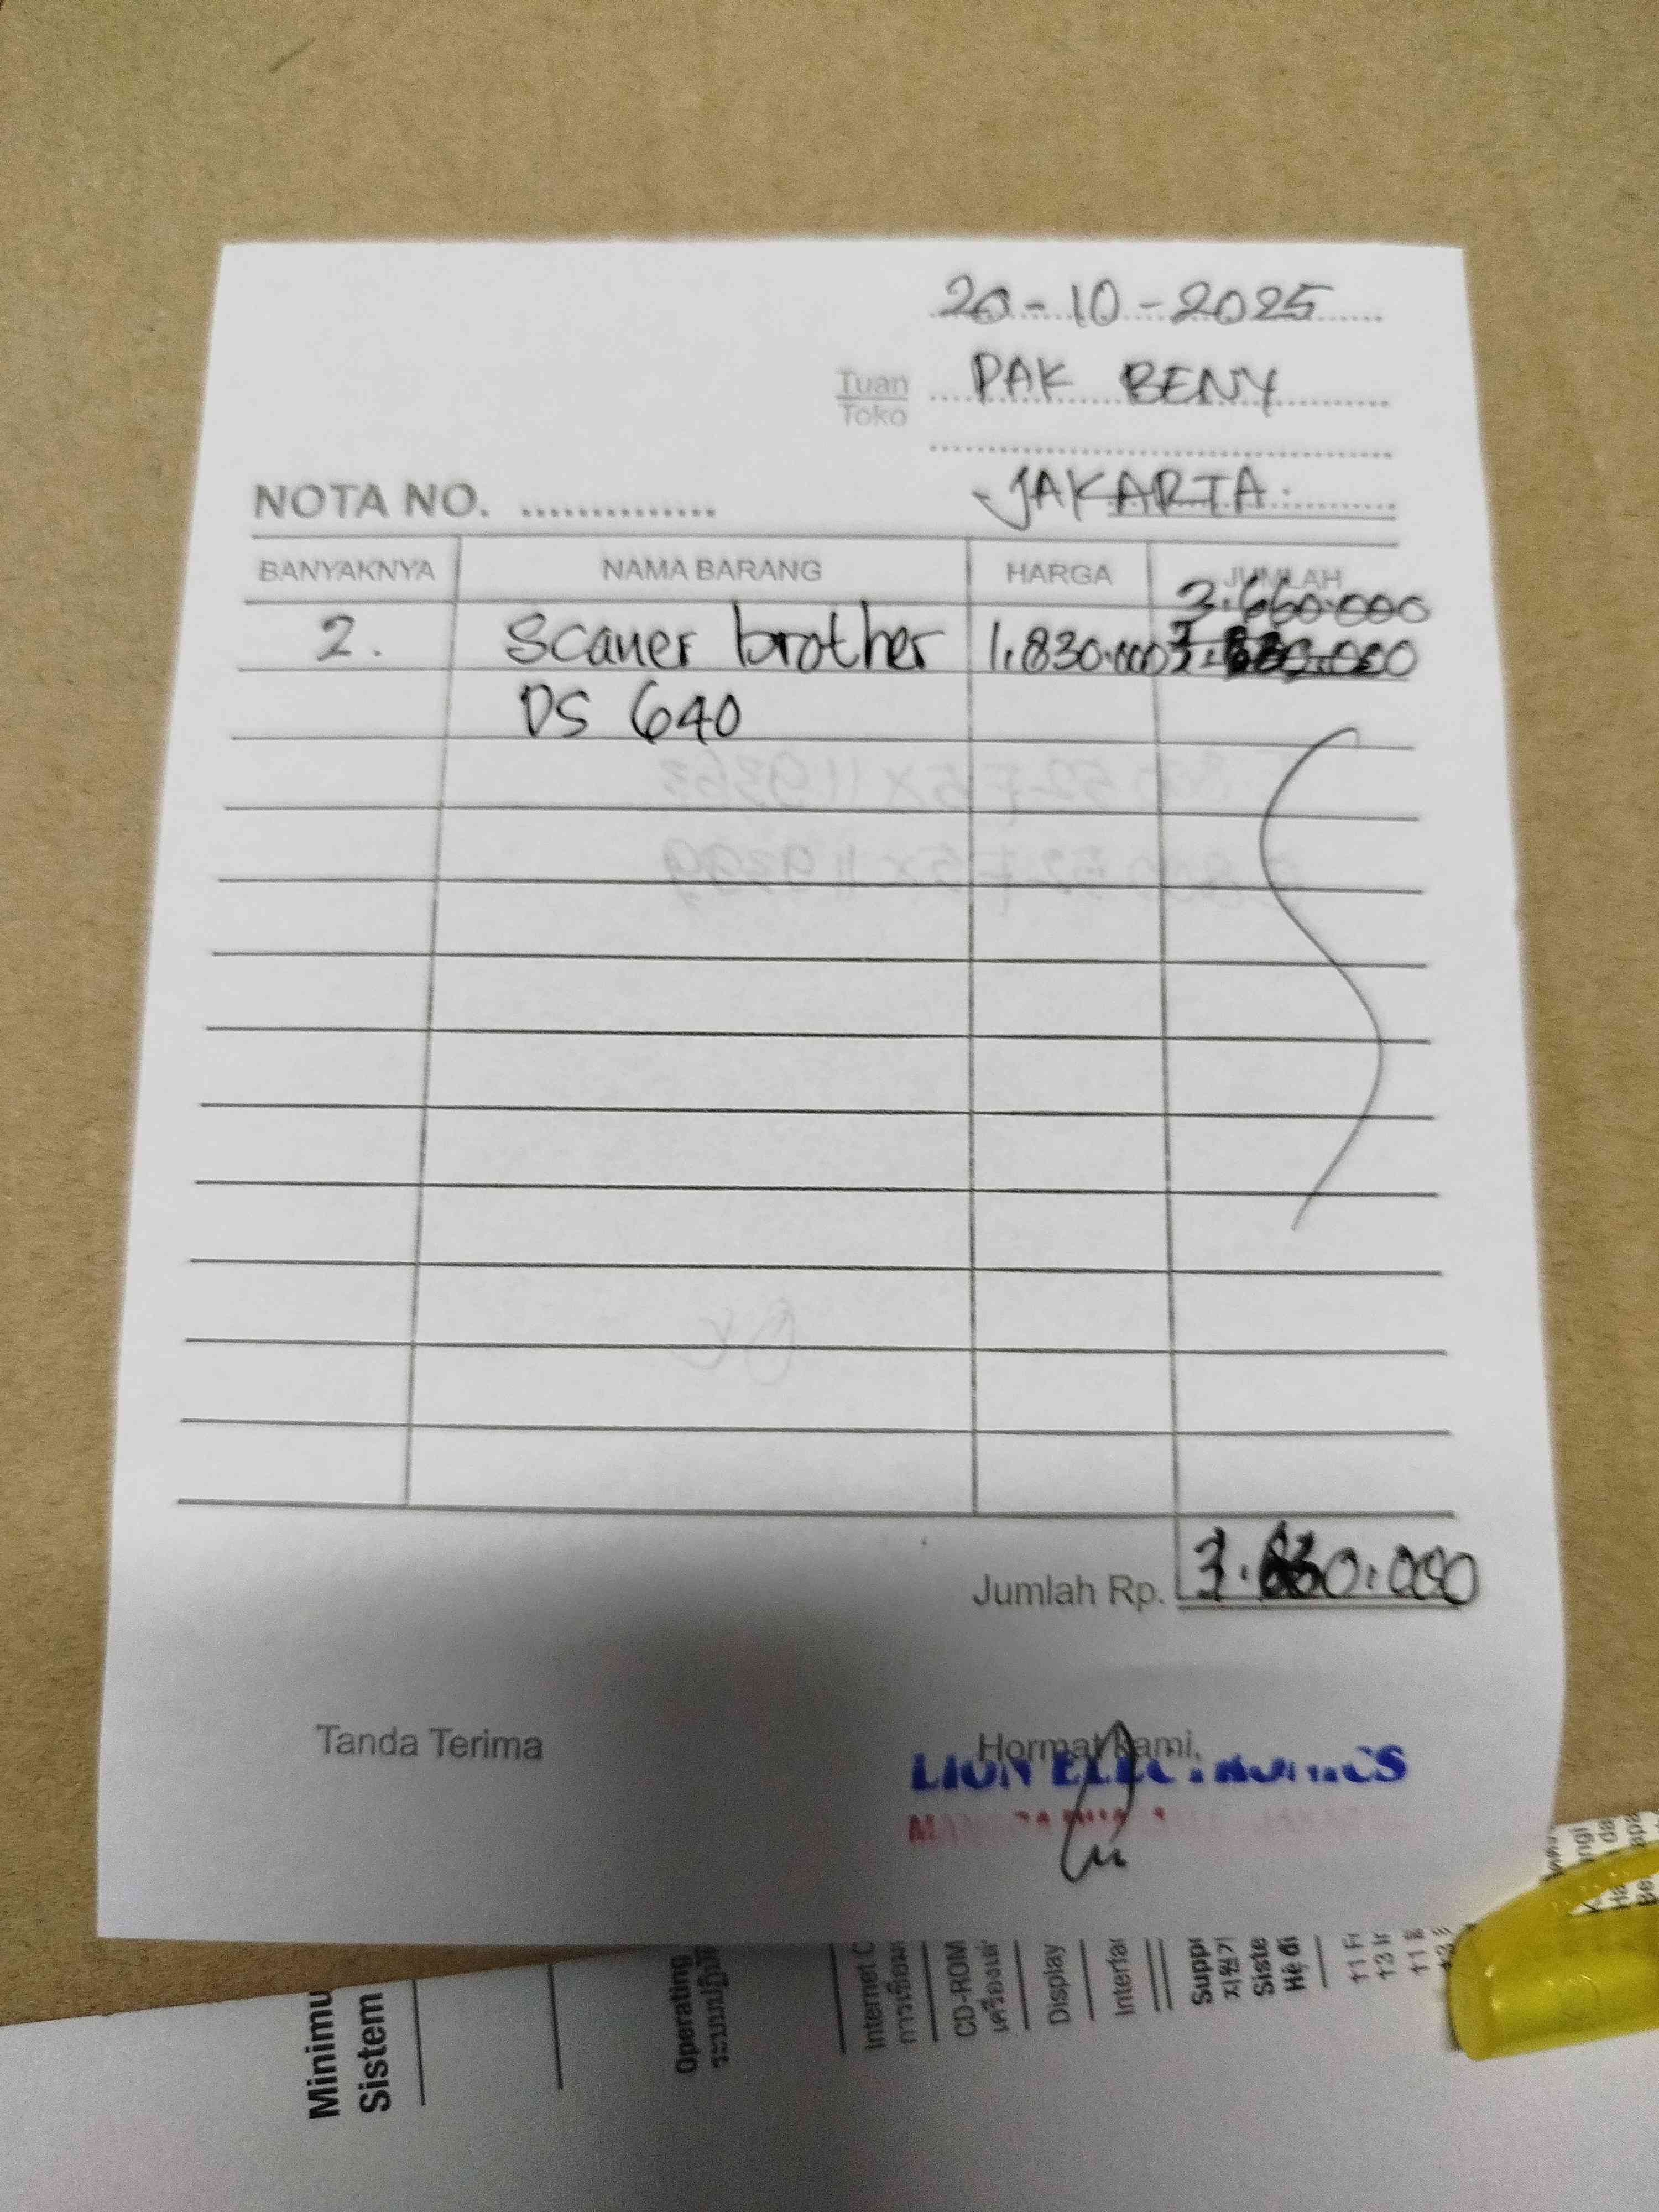 20-10-2025
Tuan
Toko
PAK BENY
JAKARTA.
NOTA NO.
BANYAKNYA NAMA BARANG HARGA JUMLAH
3.660.000
2. Scaner brother 1.830.000
DS 640
Jumlah Rp.
Tanda Terima
Hormat kami,
LION ELECTRONICS
Minimu
Sistem
Operating
Internet C
CD-ROM
Display
Interfac
Suppo
Siste
Hệ đi